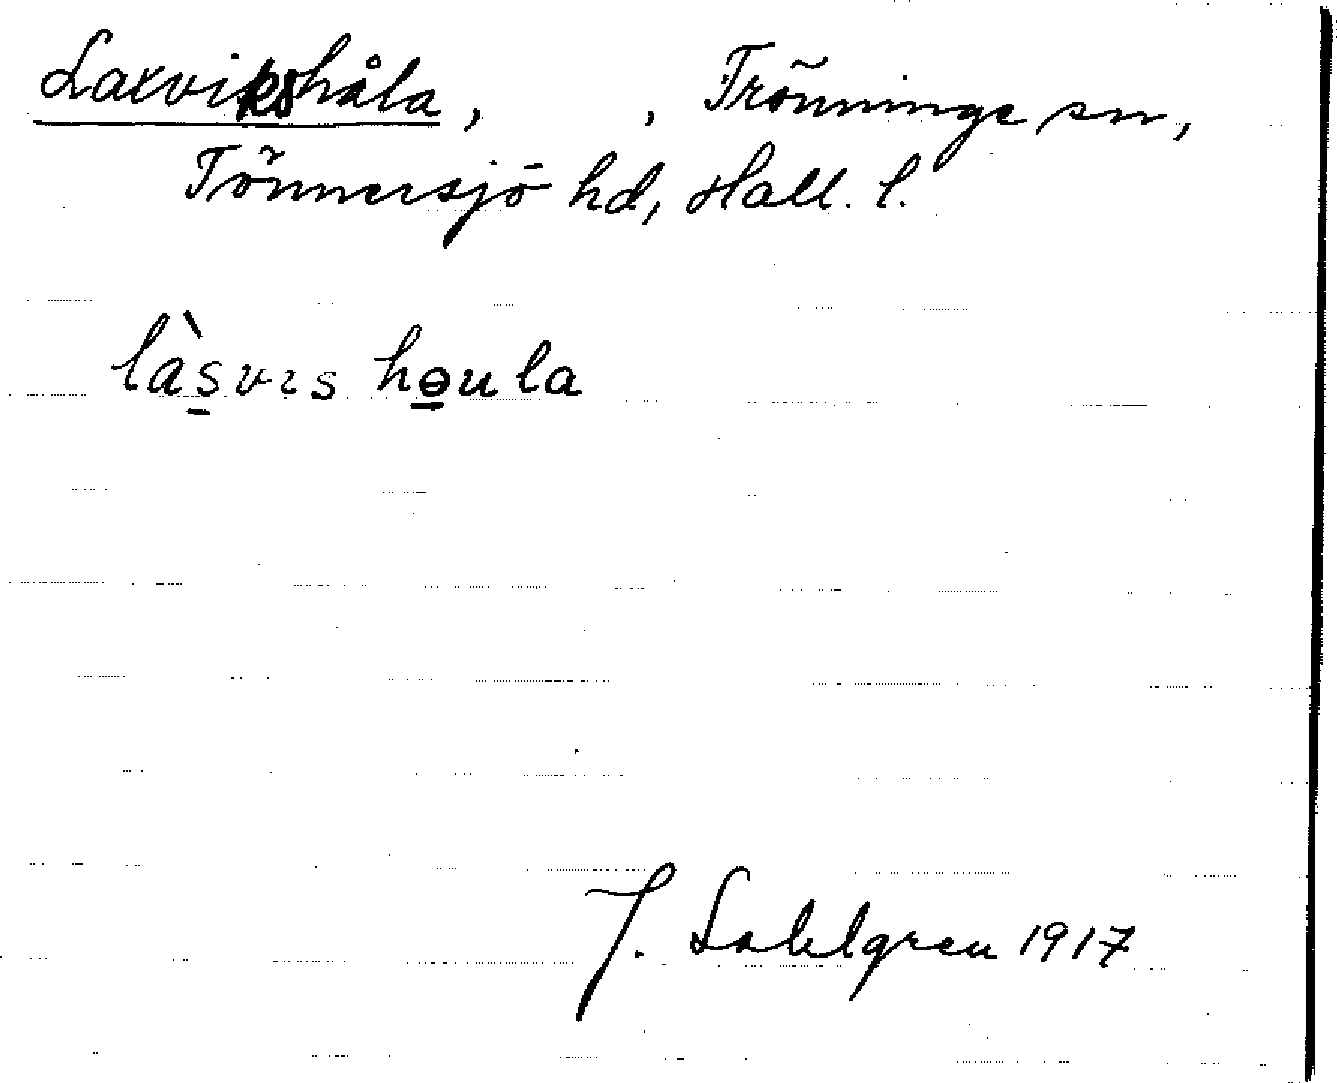 Laxvikshåla, , Trönninge sn,
Tönnersjö hd, Hall. l.
làsvıs hɵula
J. Sahlgren 1917